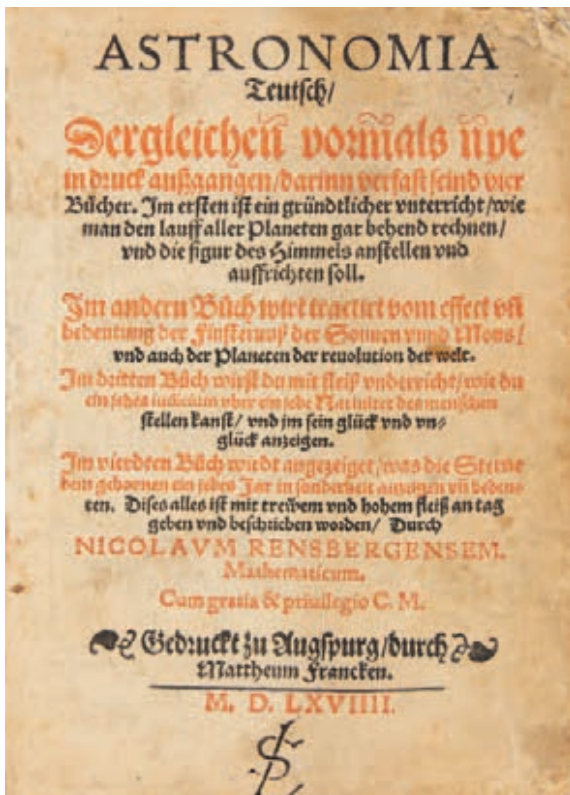 ASTRONOMIA
Teutsch/
Dergleicheñ vorm̃als ñye
in druck außgangen/darinn verfast seind vier
Bücher. Im ersten ist ein gründtlicher vnterricht/wie
man den lauff aller Planeten gar behend rechnen/
vnd die figur des Himmels anstellen vnd
auffrichten soll.
Im andern Büch wirt tractirt vom effect vñ
bedeutung der Finsternuß der Sonnen vnnd Mons/
vnd auch der Planeten der reuolution der welt.
Im dritten Büch wirst du mit fleiß vnderricht/wie du
ein jedes iudicium vber ein jede Natiuitet des menschen
stellen kanst/ vnd jm sein glück vnd vn⸗
glück anzeigen.
Im vierdten Büch wirdt angezeiget/was die Sterne
dem gebornen ein jedes Jar in sonderheit anzeigen vñ bedeu⸗
ten. Dises alles ist mit trewem vnd hohem fleiß an tag
geben vnd beschriben worden/ Durch
NICOLAVM RENSBERGENSEM.
Mathematicum.
Cum gratia & priuilegio C. M.
Gedruckt zu Augspurg/durch
Mattheum Francken.
M. D. LXVIIII.